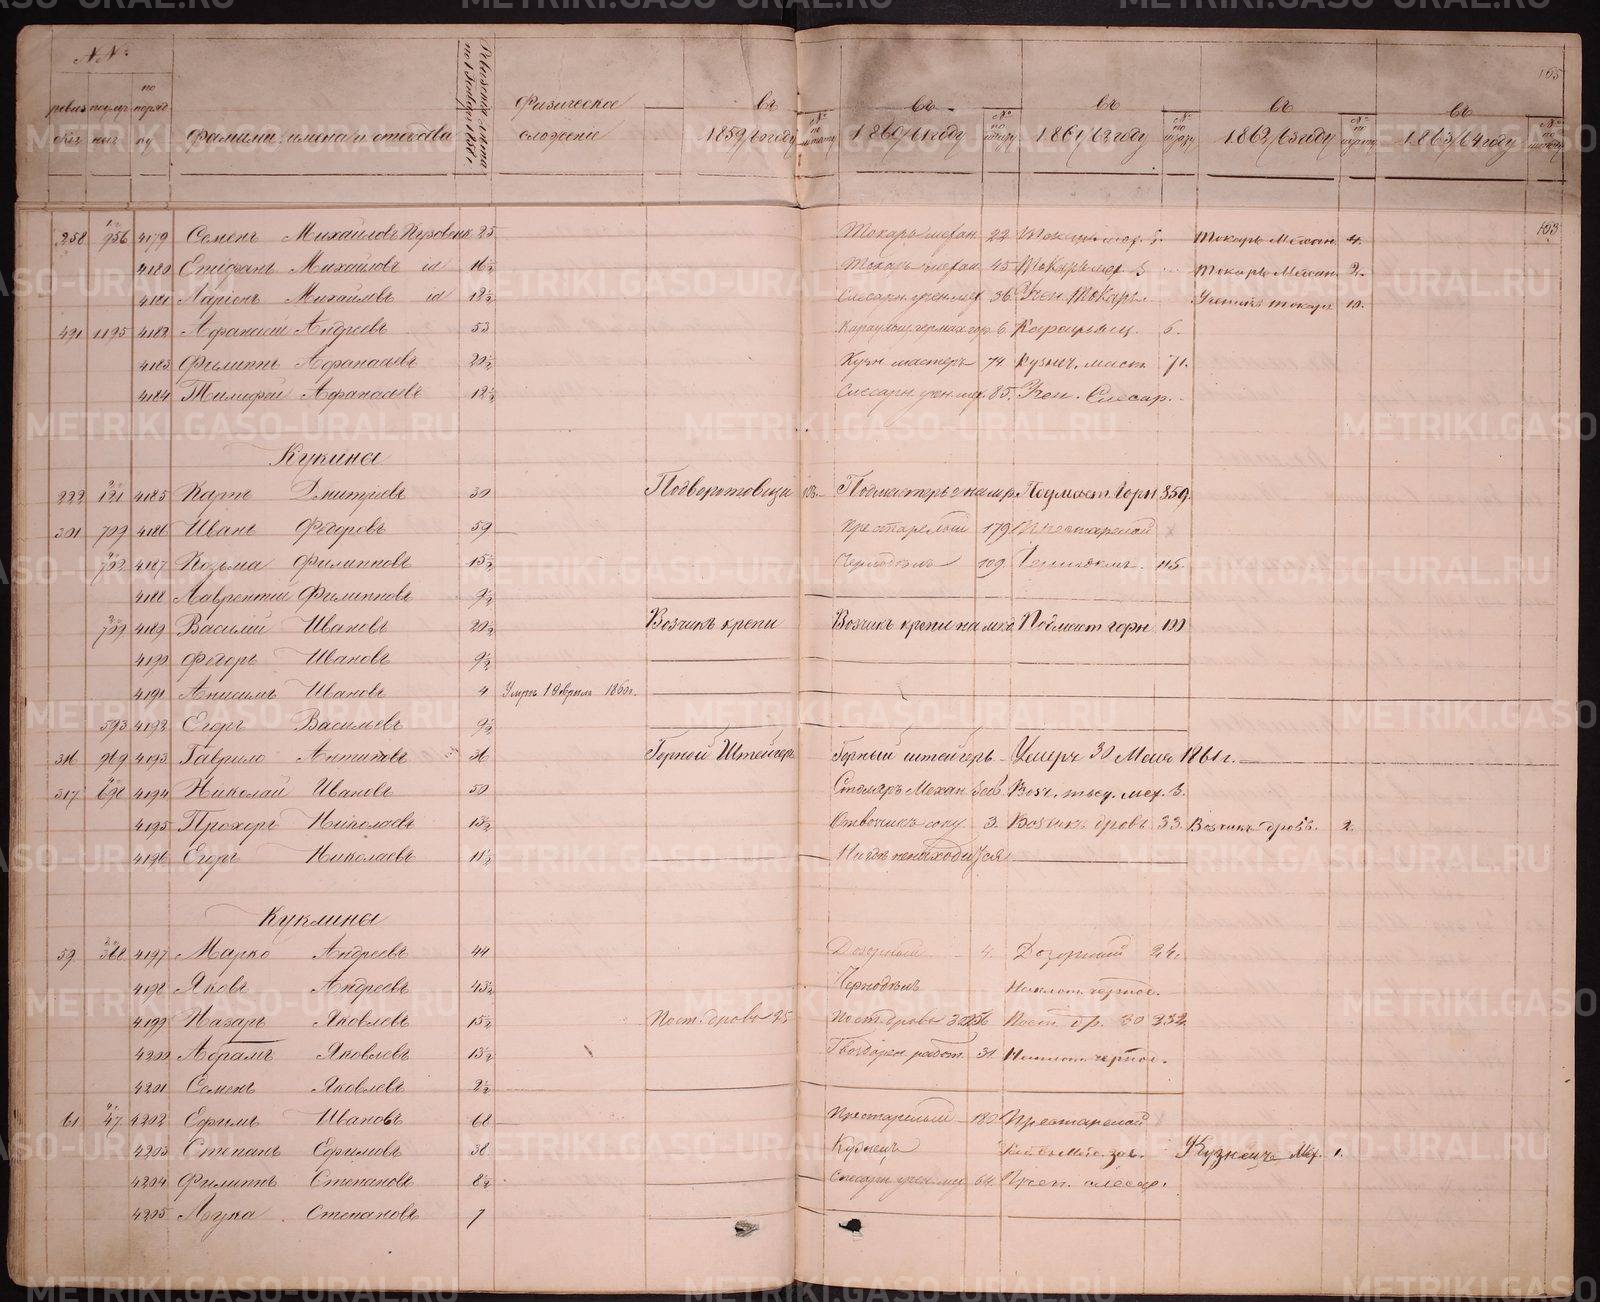 №№
ревиз посемр по поряд
скіе ные ку
Фамиліи, имена и отчества
Физическое сложеніе
въ 1859/60 году № по штату
въ 1860/61 году № по штату
въ 1861/62 году № по штату
въ 1862/63 году № по штату
въ 1863/64 году № по штату
165
163
258 956 4179 Семенъ Михайловъ 25 Токарь механ 22 Токарь мех. Токарь Механ 4.
4180 Степанъ Михайловъ id 16½ Токарь механ 45 Токарь мех 5 Токарь Механ 2.
4181 Ларіонъ Михайловъ id 12½ Слесарн. учен. мех 36 Учен. Токарь Ученикъ токаря 10.
491 1195 4182 Афанасій Андреевъ 53 6 Караульщ. 6.
4183 Филиппъ Афанасьевъ 20½ Кузн мастеръ 74 Кузнеч. маст. 71.
4184 Тимофей Афанасьевъ 12½ Слесарн. учен. мех. 85. Учен. Слесар.
Кукина
222 121 4185 Карпъ Дмитріевъ 30 Подмаст Горн 359.
301 709 4186 Иванъ Федоровъ 59 Престарелый 179 Престарелой
702 4187 Козьма Филипповъ 15½ Чернодѣлъ 109 Чернодѣлъ. 115.
4188 Лаврентій Филипповъ 9½
709 4189 Василій Ивановъ 20½ Возчикъ крепи Возчикъ крепи Подмаст горн 100
4190 Федоръ Ивановъ 9½
4191 Анисимъ Ивановъ 4 Умръ 1 Апрѣля 1860 г.
593 4192 Егоръ Васильевъ 9½
316 969 4193 Гаврило Антиповъ 36 Горной Штейгеръ Горный штейгеръ Умеръ 30 Мая 1861 г.
317 698 4194 Николай Ивановъ 50 Столяръ Механ
4195 Прохоръ Николаевъ 13½ 3. Возчикъ дровъ 33 Возчикъ дровъ. 2.
4196 Егоръ Николаевъ 11½ Нигдѣ ненаходится
Куклина
59 368 4197 Марко Андреевъ 44 Дозорный 4. Дозорный 24.
4198 Яковъ Андреевъ 43½ Чернодѣлъ
4199 Назаръ Яковлевъ 15½ Пост. дрова 25 Пост. дрова 30 256 Пост. др. 30 252
4200 Абрамъ Яковлевъ 13½ Гвоздарен. работ. 31
4201 Семенъ Яковлевъ 2½
61 47 4202 Ефимъ Ивановъ 68 Престарелый 180 Престарелой
4203 Степанъ Ефимовъ 38 Кузнецъ Кузнецъ Мех. 1.
4204 Филиппъ Степановъ 8½ Слесарн. учен. ме 64 Учен. слесар.
4205 Лука Степановъ 7
METRIKI.GASO-URAL.RU